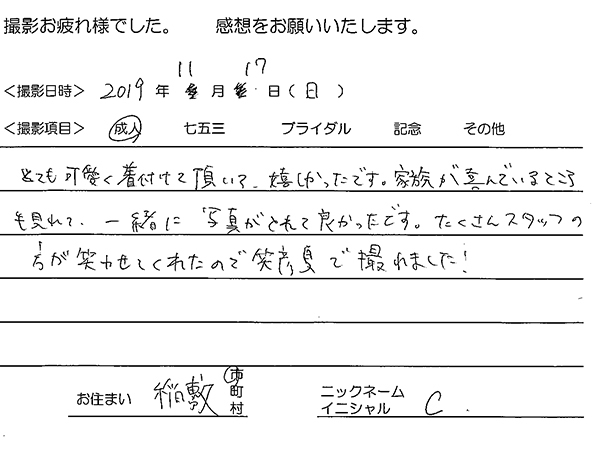 撮影お疲れ様でした。 感想をお願いいたします。
11 17
＜撮影日時＞ 2019 年 月 日 ( 日 )
＜撮影項目＞ 成人 七五三 ブライダル 記念 その他
とても可愛く着付けて頂いて、嬉しかったです。家族が喜んでいるところ
も見れて、一緒に写真がとれて良かったです。たくさんスタッフの
方が笑わせてくれたので笑顔で撮れました！
お住まい 稲敷 市町村 ニックネーム イニシャル C.